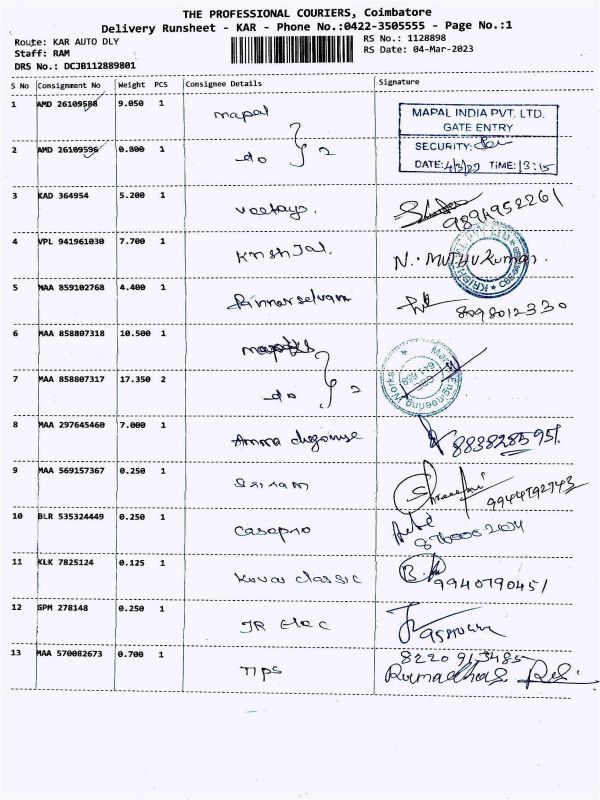 THE PROFESSIONAL COURIERS, Coimbatore
Delivery Runsheet - KAR - Phone No.:0422-3505555 - Page No.:1
Route: KAR AUTO DLY
RS No.: 1128898
Staff: RAM
RS Date: 04-Mar-2023
DRS No.: DCJB112889801
S No Consignment No Weight PCS Consignee Details Signature
1 AMD 26109588 9.050 1 mapal
MAPAL INDIA PVT. LTD.
GATE ENTRY
SECURITY:
DATE: 4/3/23 TIME: 13:15
2 AMD 26109596 0.800 1 do } 2
3 KAD 364954 5.200 1
9894952261
4 VPL 941961030 7.700 1
N. MUTHU Kumar.
5 MAA 859102768 4.400 1
8098012330
6 MAA 858807318 10.500 1
7 MAA 858807317 17.350 2 do } 2
Engineering Works
8 MAA 297645460 7.000 1 Amma
8838285951
9 MAA 569157367 0.250 1 Sriram
9944792743
10 BLR 535324449 0.250 1 Casapro
11 KLK 7825124 0.125 1 Kovai classic
9940790451
12 GPM 278148 0.250 1 JR Elec
13 MAA 570082673 0.700 1 Tips
8220913485